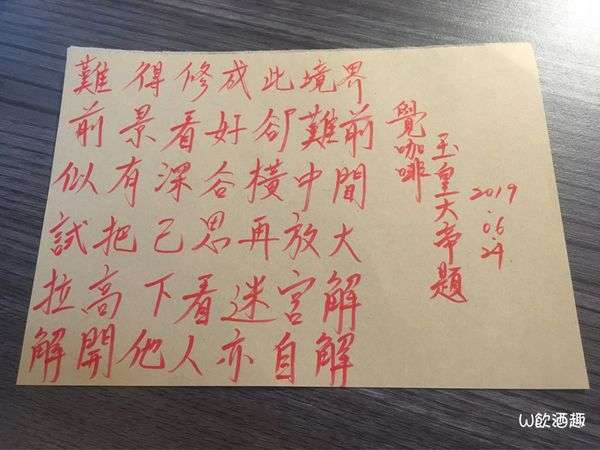 難得修成此境界
前景看好卻難前
似有深谷橫中間
試把己思再放大
拉高下看迷宮解
解開他人亦自解
覺咖啡
玉皇大帝題
2019.06.24
W飲酒趣